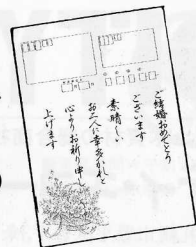 ご結婚おめでとう
ございます
素晴しい
お二人に幸多かれと
心よりお祈り申し
上げます